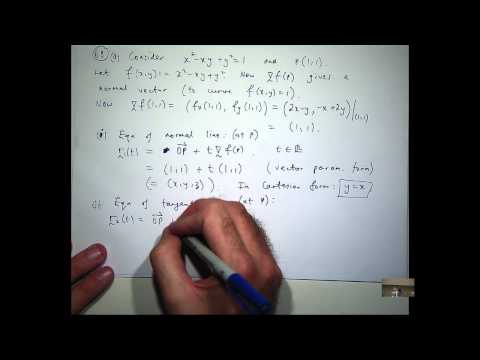 Q9 (a) Consider x² - xy + y² = 1 and P(1,1).
Let f(x,y) := x² - xy + y². Now ∇f(P) gives a
normal vector (to curve f(x,y) = 1).
Now ∇f(1,1) = (fx(1,1), fy(1,1)) = (2x-y, -x+2y)|(1,1)
= (1,1).
i) Eqn of normal line: (at P)
r₁(t) = OP + t ∇f(P), t ∈ ℝ
= (1,1) + t(1,1) (vector param. form)
(= (x,y)). In Cartesian form: y=x
ii) Eqn of tangent (at P):
r₂(t) = OP